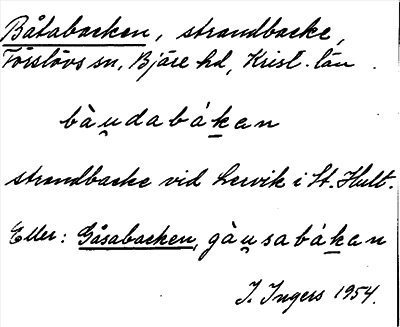 Båtabacken, strandbacke,
Förslövs sn, Bjäre hd, Krist. län.
bàu̲dabák̲an
strandbacke vid Lervik i St. Hult.
Eller: Gåsabacken, gàu̲sabák̲an
I. Ingers 1954.